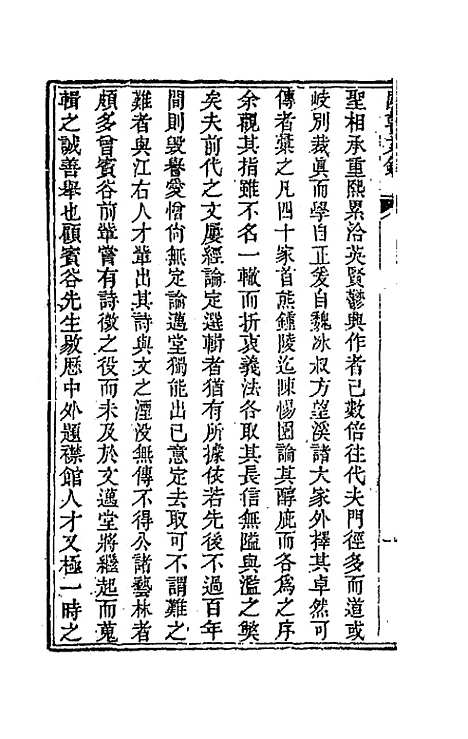 聖相承重熙累洽英賢鬱興作者已數倍往代夫門徑多而道或
岐別裁眞而學自正爰自魏冰叔方望溪諸大家外擇其卓然可
傳者葉之凡四十家首熊鍾陵迄陳惕園論其醇庛而各爲之序
余觀其指雖不名一轍而折衷義法各取其長信無隘與濫之獘
矣夫前代之文屢經論定選輯者猶有所據依若先後不過百年
間則毀譽愛憎尙無定論邁堂獨能出已意定去取可不謂難之
難者與江右人才軰出其詩與文之湮没無傳不得公諸藝林者
頗多曾賓谷前軰嘗有詩徵之役而未及於文邁堂將繼起而蒐
輯之誠善舉也顧賓谷先生敭歷中外題襟館人才又極一時之